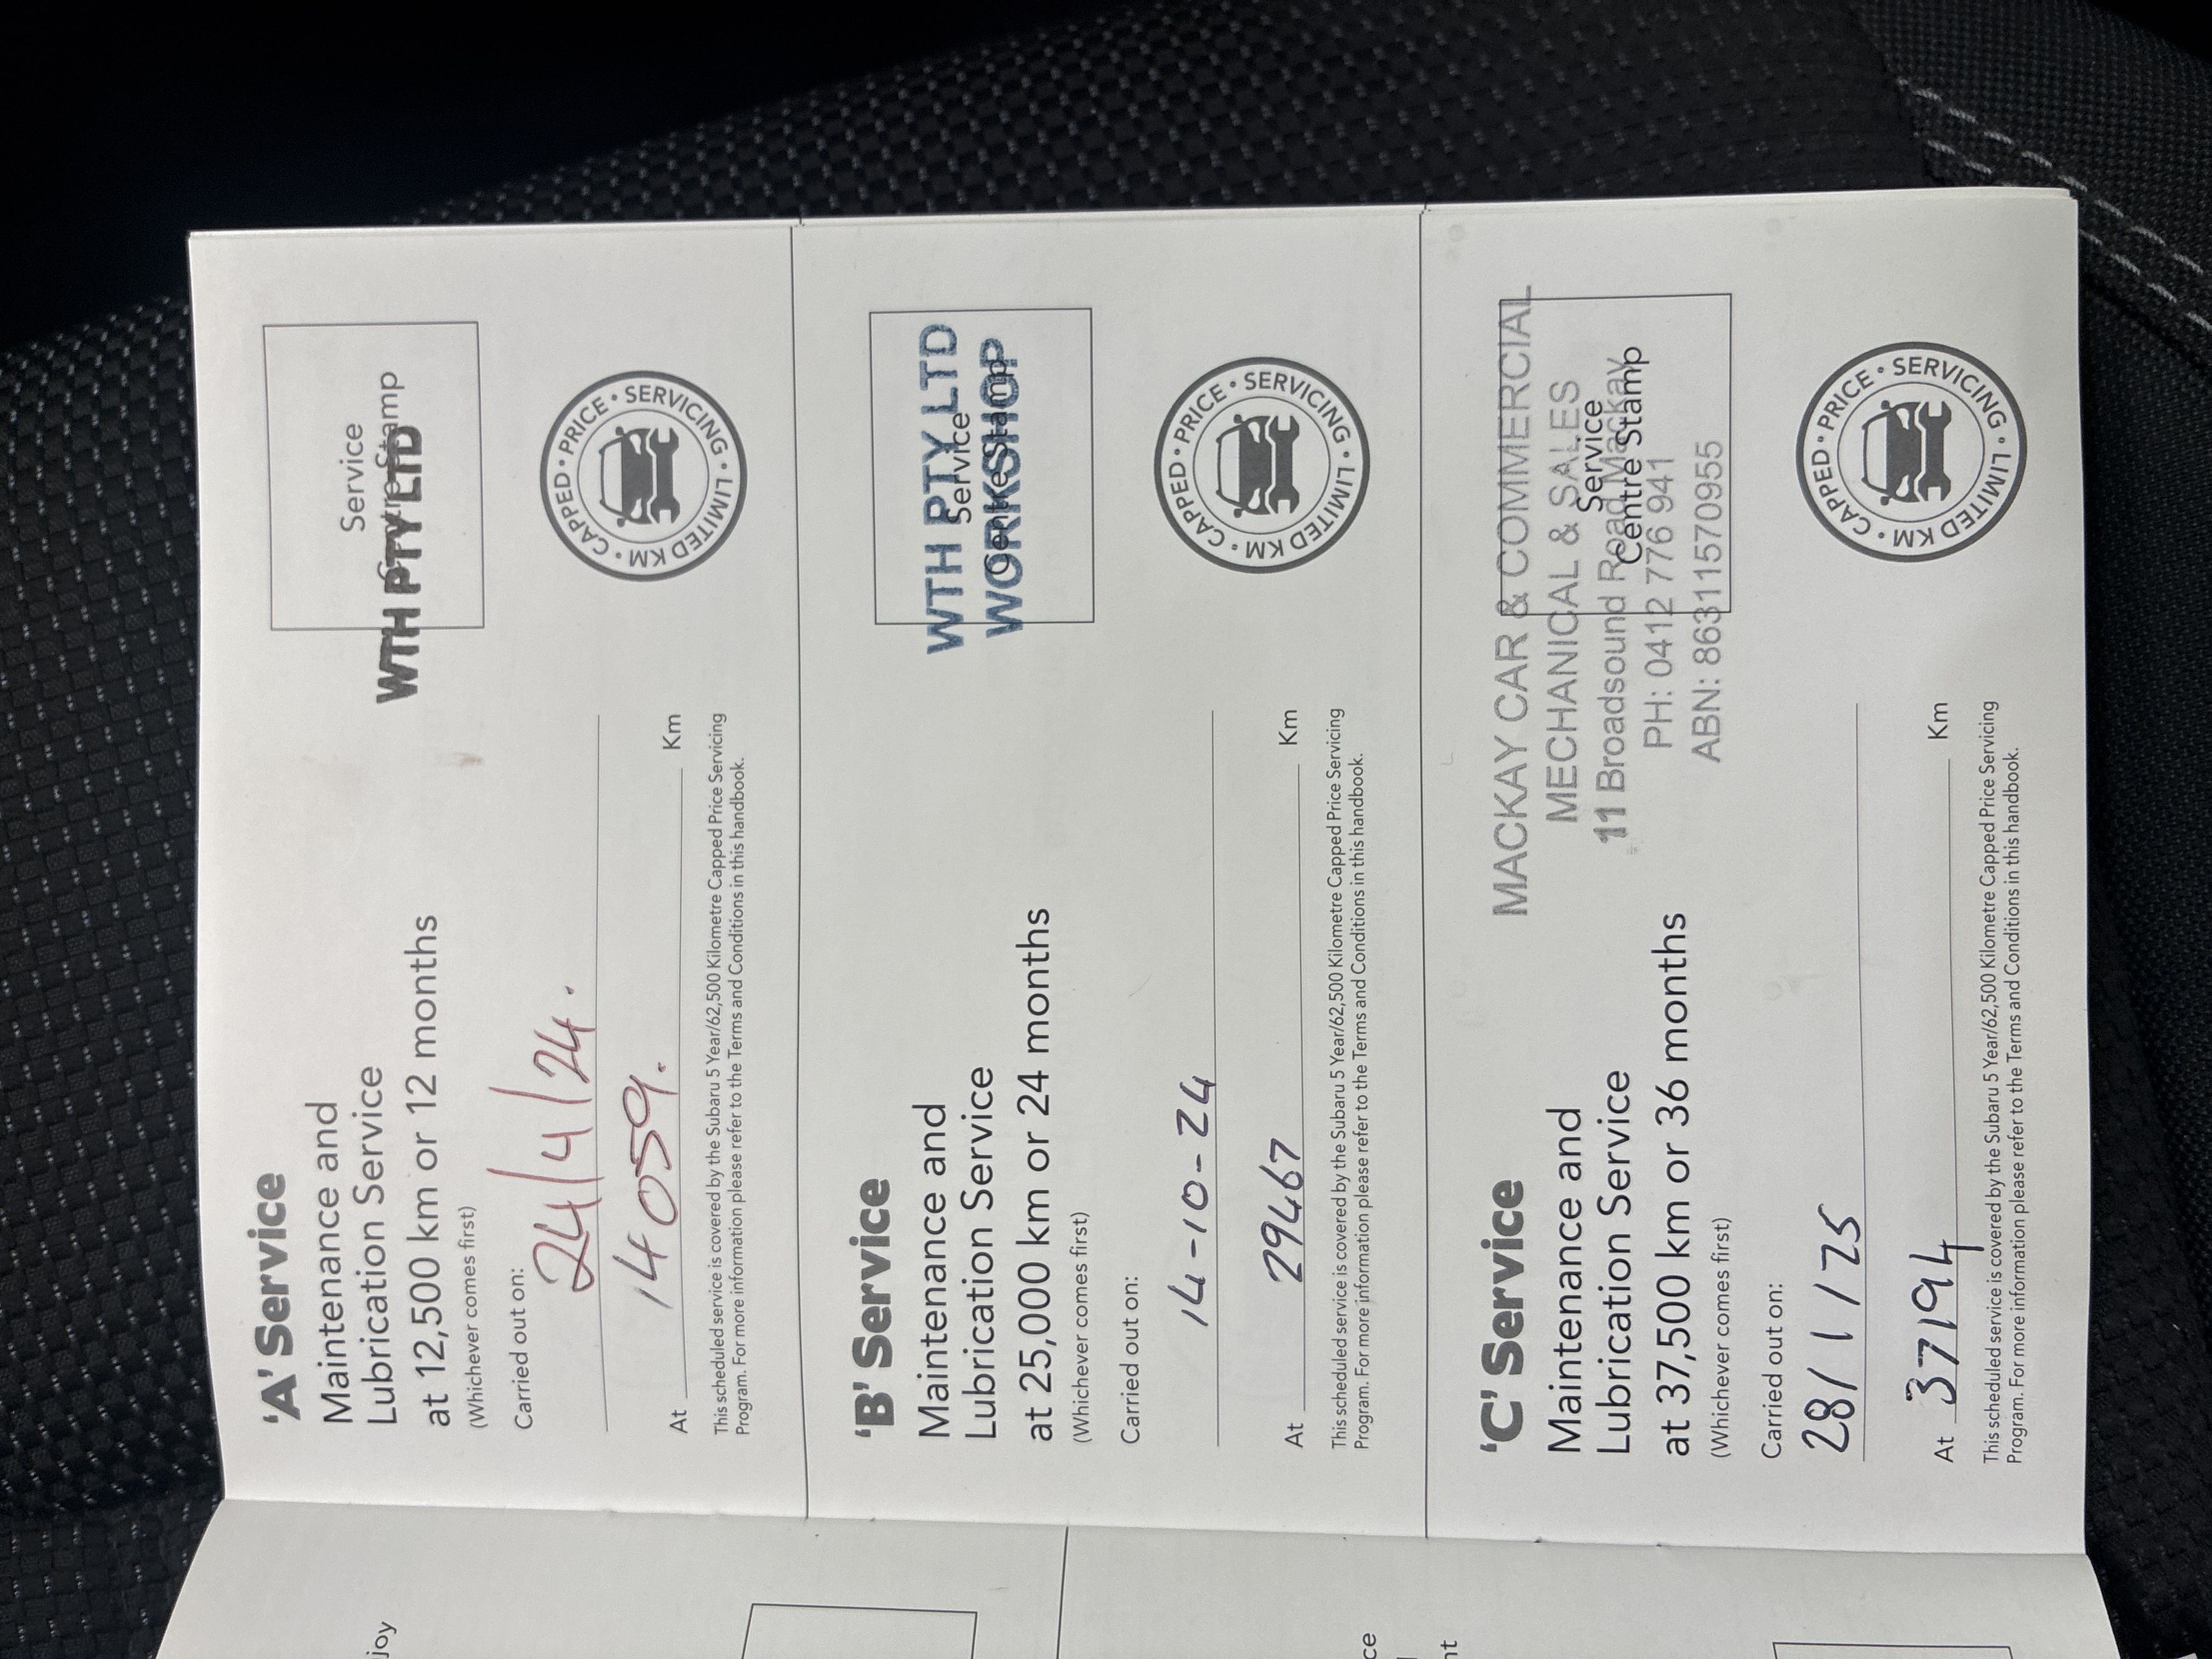 'A' Service
Maintenance and
Lubrication Service
at 12,500 km or 12 months
(Whichever comes first)
Carried out on:
24/4/24.
At 14059. Km
This scheduled service is covered by the Subaru 5 Year/62,500 Kilometre Capped Price Servicing
Program. For more information please refer to the Terms and Conditions in this handbook.
Service
Centre Stamp
WTH PTY LTD
CAPPED • PRICE • SERVICING • LIMITED KM •
'B' Service
Maintenance and
Lubrication Service
at 25,000 km or 24 months
(Whichever comes first)
Carried out on:
14-10-24
At 29467 Km
This scheduled service is covered by the Subaru 5 Year/62,500 Kilometre Capped Price Servicing
Program. For more information please refer to the Terms and Conditions in this handbook.
Service
Centre Stamp
WTH PTY LTD
WORKSHOP
CAPPED • PRICE • SERVICING • LIMITED KM •
'C' Service
Maintenance and
Lubrication Service
at 37,500 km or 36 months
(Whichever comes first)
Carried out on:
28/1/25
At 37194 Km
This scheduled service is covered by the Subaru 5 Year/62,500 Kilometre Capped Price Servicing
Program. For more information please refer to the Terms and Conditions in this handbook.
Service
Centre Stamp
MACKAY CAR & COMMERCIAL
MECHANICAL & SALES
11 Broadsound Road Mackay
PH: 0412 776 941
ABN: 86311570955
CAPPED • PRICE • SERVICING • LIMITED KM •